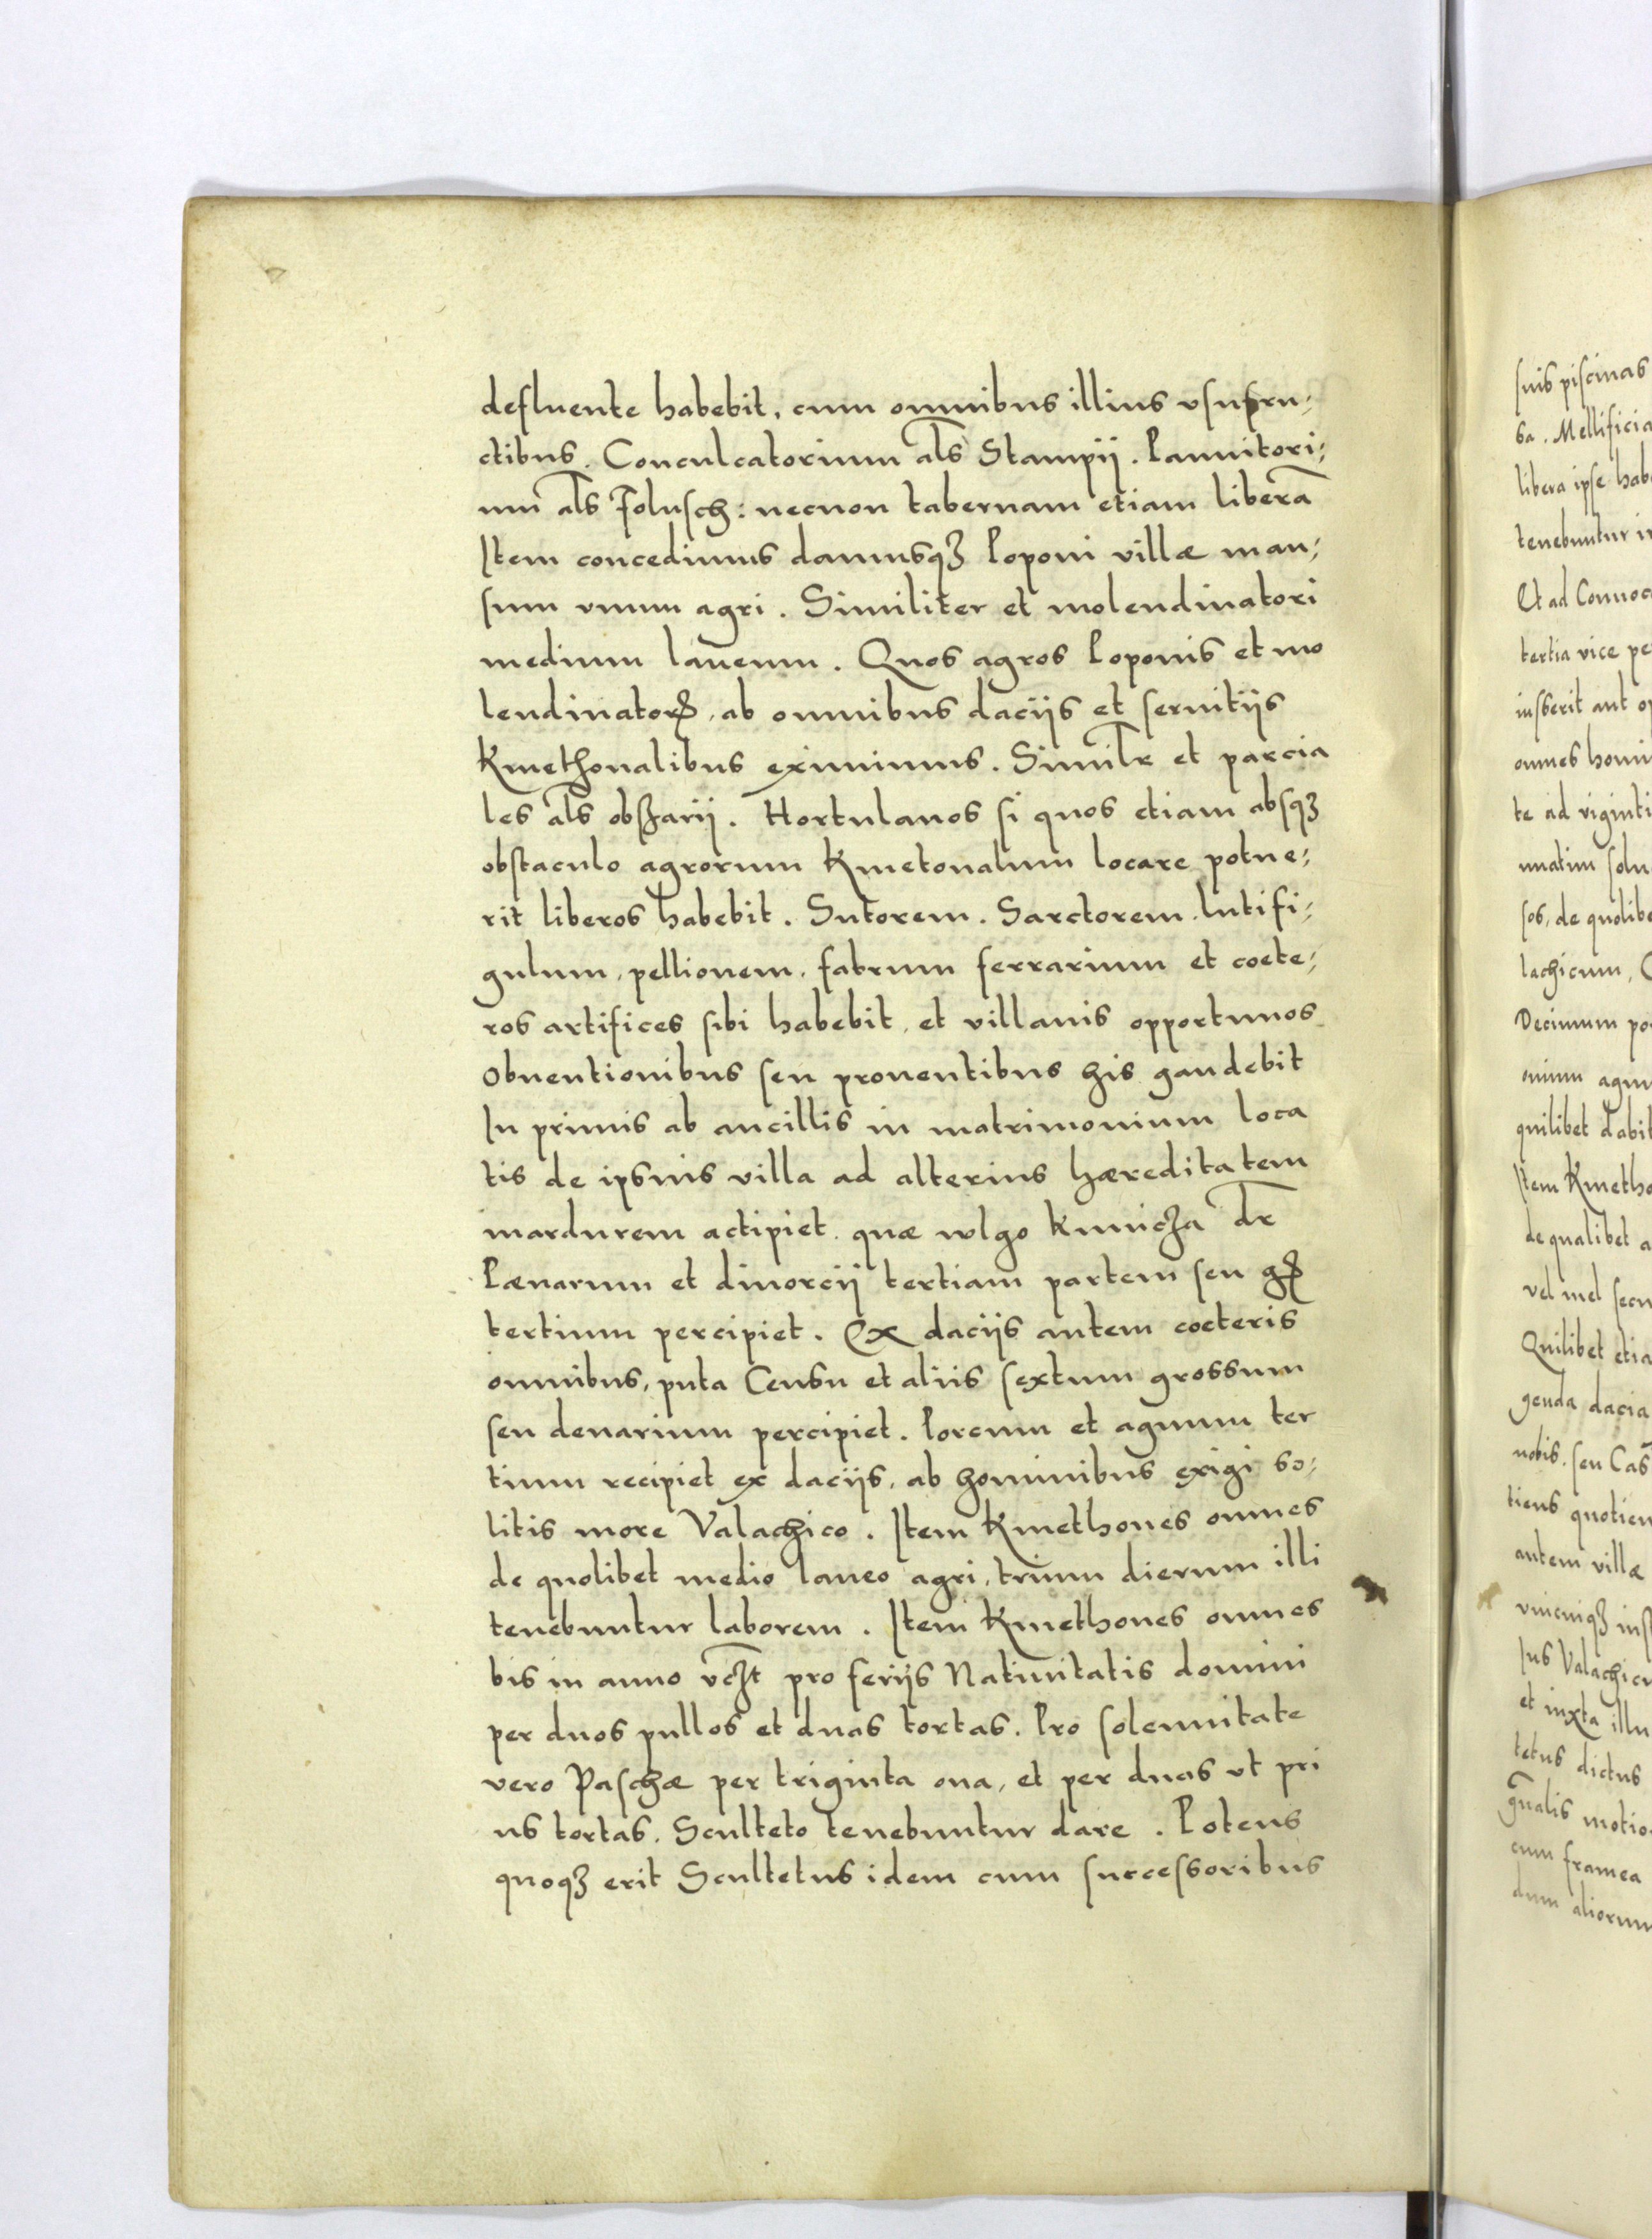 defluente habebit, cum omnibus illius vsufru⸗
ctibus. Conculcatorium al̃s Stampij. Pannitori⸗
um al̃s Folusch: necnon tabernam etiam liberã
Item concedimus damusqꝫ Poponi villæ man⸗
sum vnum agri. Similiter et molendinatori
medium laneum. Quos agros Poponis et mo
lendinatorꝭ, ab omnibus dacijs et seruitijs
Kmethonalibus eximimus. Similr̃ et parcia
les al̃s obszarij. Hortulanos si quos etiam absqꝫ
obstaculo agrorum Kmetonalium locare potue⸗
rit liberos habebit. Sutorem. Sarctorem. lutifi⸗
gulum, pellionem, fabrum ferrarium et coete⸗
ros artifices sibi habebit, et villanis opportunos
Obuentionibus seu prouentibus his gaudebit
In primis ab ancillis in matrimonium loca
tis de ipsius villa ad alterius hæreditatem
mardurem actipiet. quæ wlgo kunicza dr̃
Pænarum et diuorcij tertiam partem seu gꝭ
tertium percipiet. Ex dacijs autem coeteris
omnibus, puta Censu et alijs sextum grossum
seu denarium percipiet. Porcum et agnum ter
tium recipiet ex dacijs, ab hominibus exigi so⸗
litis more Valachico. Item Kmethones omnes
de quolibet medio laneo agri, trium dierum illi
tenebuntur laborem. Item Kmethones omnes
bis in anno vcꝫt pro ferijs Natiuitatis domini
per duos pullos et duas tortas. Pro solennitate
vero Paschæ per triginta oua, et per duas vt pri
us tortas. Sculteto tenebuntur dare. Potens
quoqꝫ erit Scultetus idem cum successoribus
suis piscinas
sa. Mellificia
libera ipse hab
tenebuntur i
Et ad Conuoc
tertia vice pe
iusserit aut o
omnes homi
te ad viginti
nuatim solu
sos, de quolibe
lachicum,
Decimum po
omnium agnu
quilibet dabit
Item Kmetho
de qualibet a
vel mel secu
Quilibet etia
genda dacia
nobis, seu Cas
tiens quotien
autem villæ
vnicuiqꝫ ins
Ius Valachicu
et iuxta illu
tetus dictus
gñalis motio
cum framea
dum aliorum